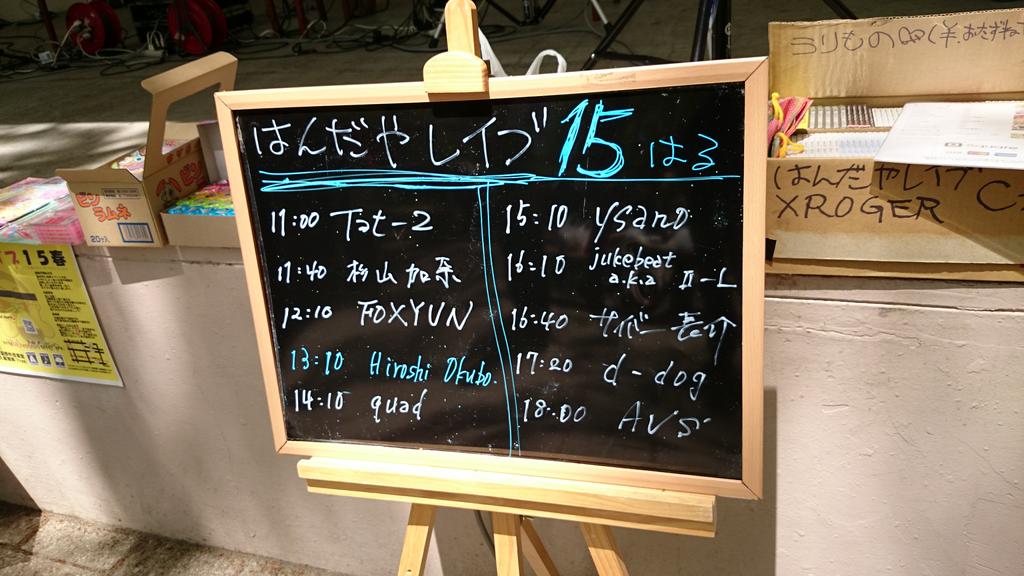 はんだやレイブ 15 はる
11:00 Tat-2
11:40 杉山加奈
12:10 FOXYUN
13:10 Hiroshi Okubo.
14:10 quad
15:10 ysano
16:10 jukebeat
a.k.a II-L
16:40 サイバー
17:20 d-dog
18:00 AVS
ヨリもの
はんだやレイブ
XROGER C
ラムネ
15春